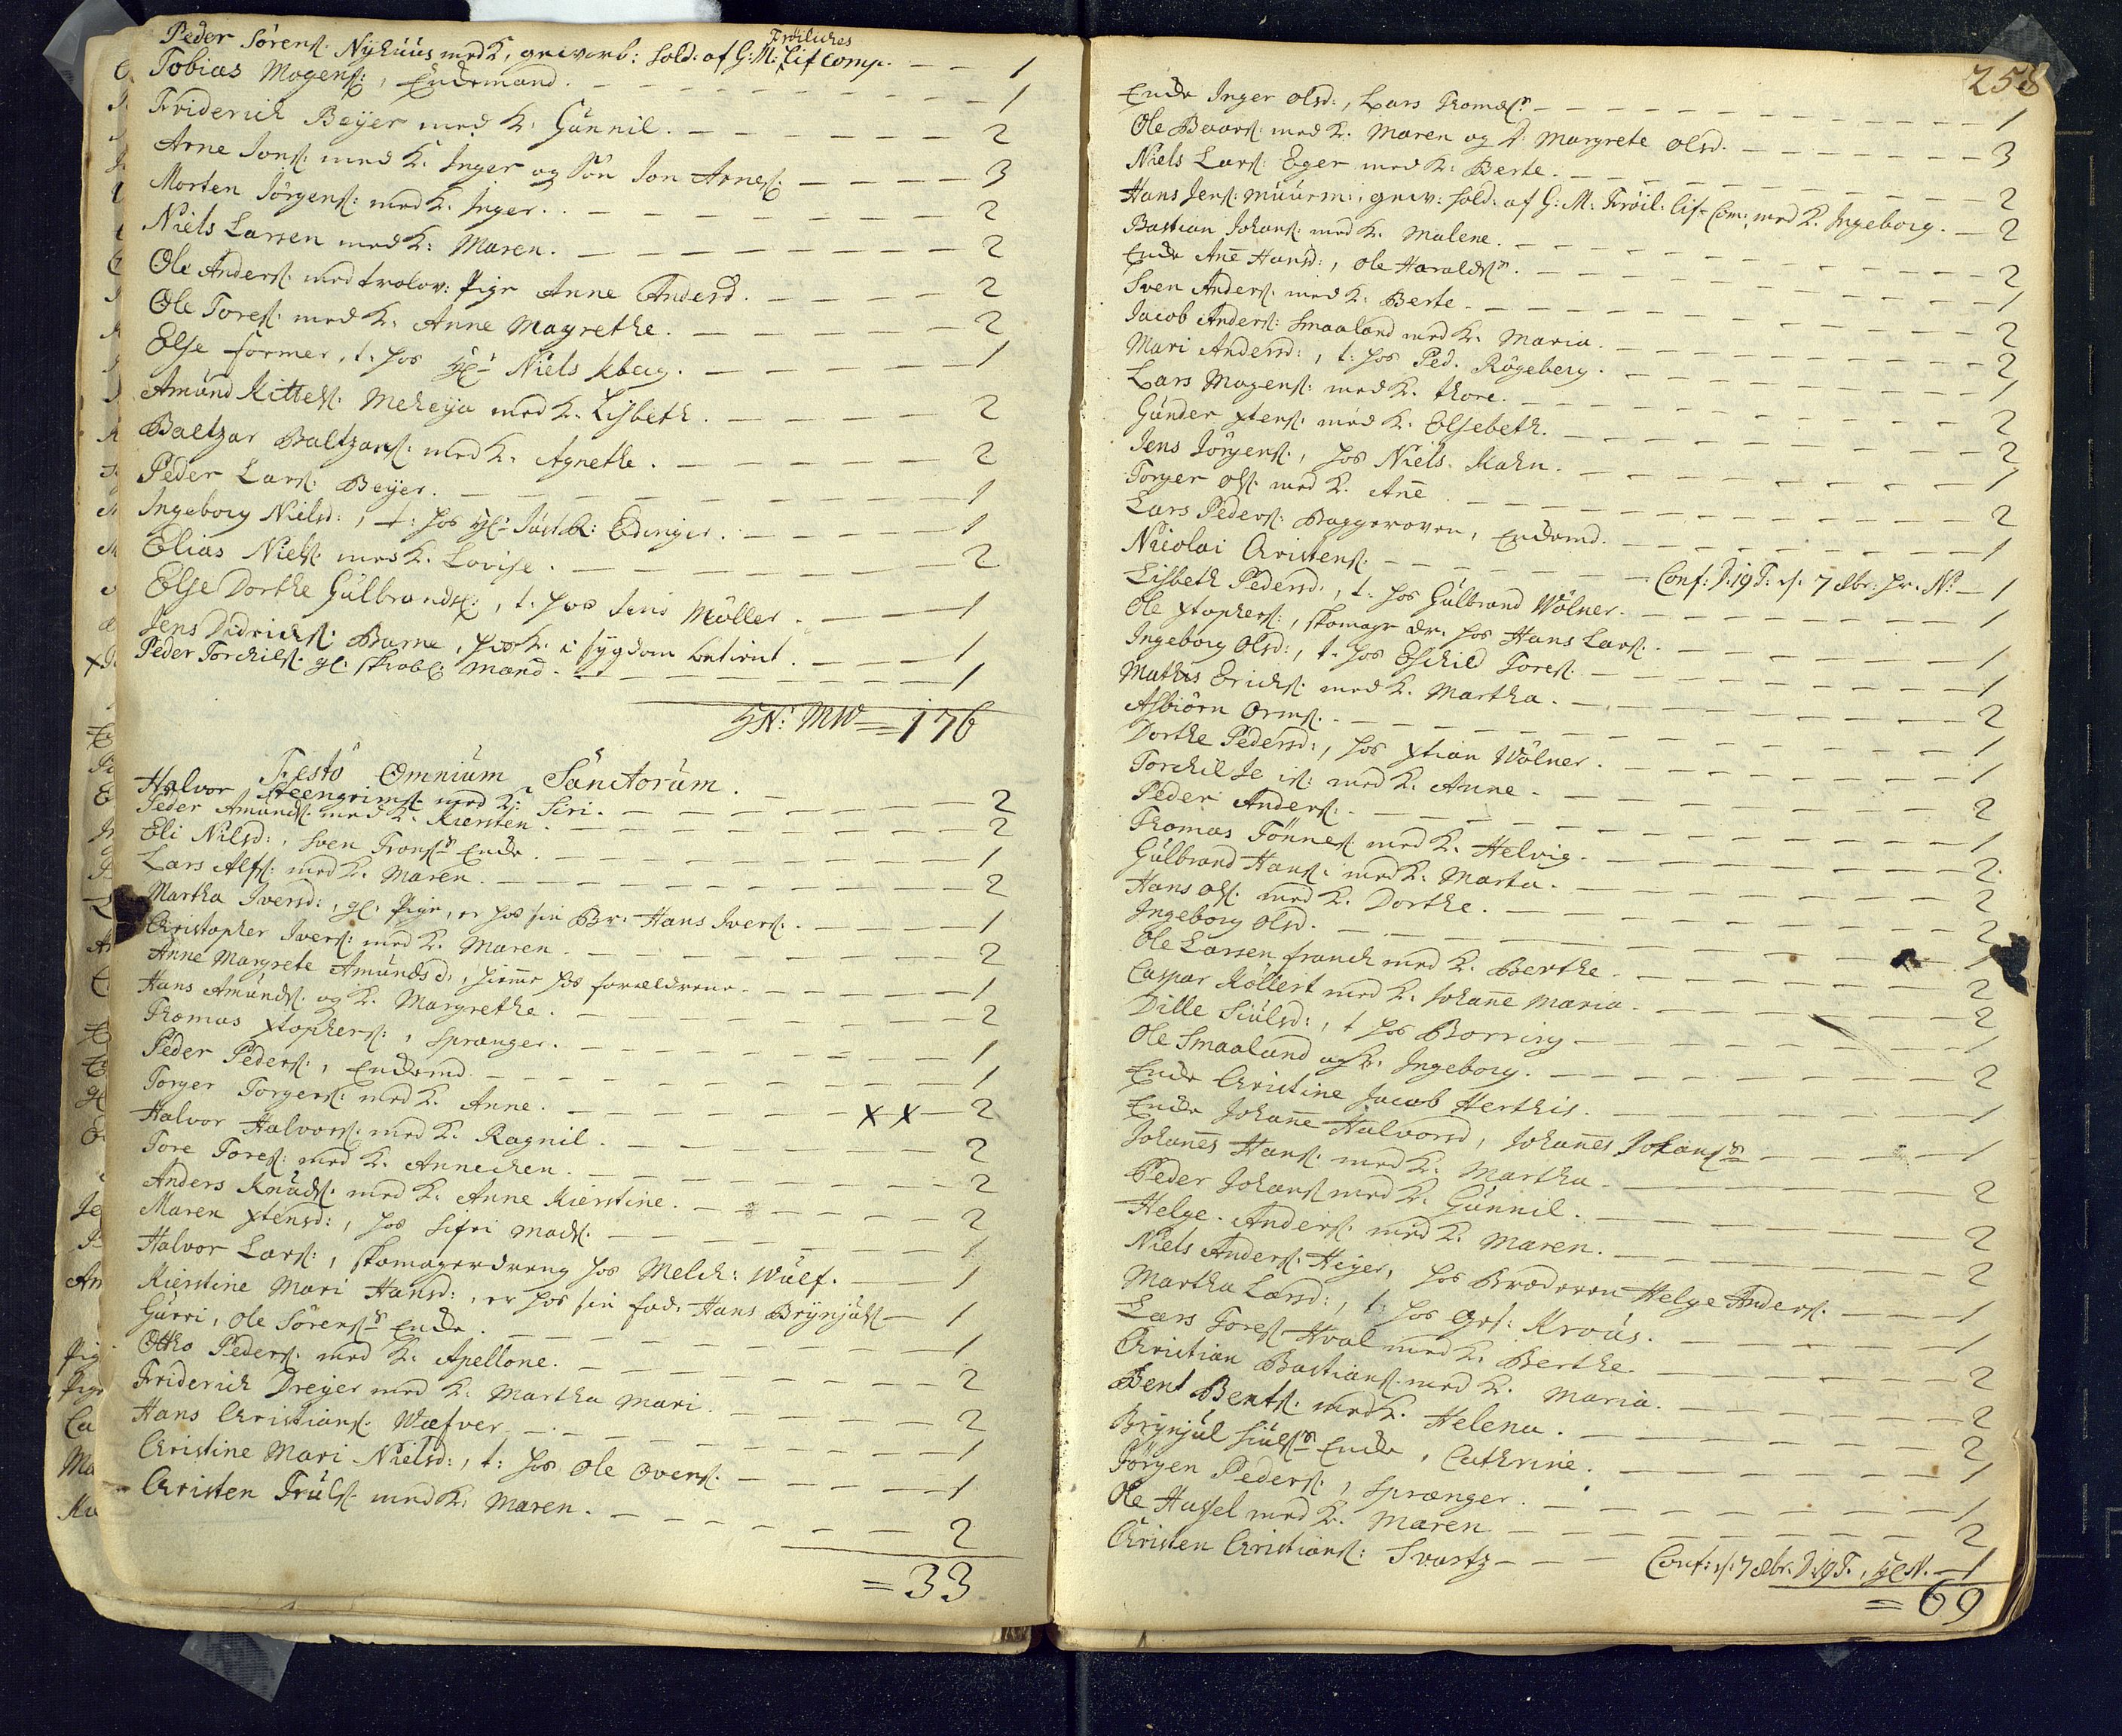 Peder Sörens: Nÿhuus med K, gevorb: Sold: af G: M: Fröliches Lif Comp. — — 1
Tobias Mogens:, Enkemand. — 1
Friderich Beÿer med K: Gunnil. — 2
Arne Jons: med K. Inger og Sön Jon Arnes: — 3
Morten Jörgens: med K. Inger. — 2
Niels Larsen med K: Maren. — 2
Ole Anders: med trolov: Pige Anne Andersd. — 2
Ole Tores: med K. Anne Magrethe. — 2
Else former, t. hos Hr Niels — 1
Amund Kittels: Meheÿa med K. Lisbeth. — 2
Baltzar Baltzars: med K. Agnethe. — 2
Peder Lars: Beÿer. — 1
Ingeborg Nielsd:, t: hos Hr Just: R: Edinger. — 1
Elias Niels: med K. Lovise. — 2
Else Dorthe Gulbrandsd:, t. hos Jens Möller. — 1
Jens Didrichs: Barne, hos K. i sÿgdom betient. — 1
Peder Torchils: gl: skrobl: Mand. — 1
MW = 176
Festo Omnium Sanctorum.
Halvor Steengrims: med K: Siri. — 2
Peder Amunds: med K. Kiersten. — 2
Eli Nilsd:, Sven Trons: Enke. — 1
Lars Alfs: med K. Maren. — 2
Martha Iversd:, gl: Pige, er hos sin Br: Hans Ivers: — 1
Christopher Ivers: med K. Maren. — 2
Anne Margrete Amundsd:, hiemme hos forældrene. — 1
Hans Amunds: og K. Margrethe. — 2
Thomas Xtophers:, sprænger. — 1
Peder Peders:, Enkemd. — 1
Torger Torgers: med K. Anne. — X X — 2
Halvor Halvors: med K. Ragnil. — 2
Tore Tores: med K. Annechen. — 2
Anders Knuds: med K. Anne Kierstine. — 2
Maren Xtensd:, hos Sifri Mads: — 1
Halvor Lars:, skomagerdreng hos Melch: Wulf. — 1
Kierstine Mari Hansd:, er hos sin fad: Hans Brÿnjuls: — 1
Gurri, Ole Sörens: Enke. — 1
Otho Peders: med K. Apellone. — 2
Friderich Dreÿer med K: Martha Mari. — 2
Hans Christians: Wæfver. — 1
Christine Mari Nielsd:, t: hos Ole Overs: — 1
Christen Truls: med K: Maren. — 2
= 33
258
Enke Inger Olsd:, Lars Thomæs: — 1
Ole Baars: med K. Maren og d. Margrete Olsd. — 3
Niels Lars: Eger med K: Berte. — 2
Hans Jens: Muurm:, gev: Sold: af G: M: Fröil: Lif-Com: med K. Ingeborg. — 2
Bastian Johans: med K. Malene. — 2
Enke Anē Hansd:, Ole Haralds: — 1
Sven Anders: med K. Berte. — 2
Jacob Anders: Smaaland med K. Maria. — 2
Mari Andersd:, t: hos Ped. Rögeberg. — 1
Lars Mogens: med K. Thore. — 2
Gunder Xtens: med K. Elsebeth. — 2
Jens Jörgens:, hos Niels. Kahn. — 1
Torger Ols: med K. Anē — 2
Lars Peders: Baggeroven, Enkemd. — 1
Nicolai Christens: — Conf: D: 19 T: s: 7 8br: — 1
Lisbeth Pedersd:, t. hos Gulbrand Wölner. — 1
Ole Xtophers:, skomager dr. hos Hans Lars: — 1
Ingeborg Olsd:, t. hos Eschild Tores: — 1
Mathis Erichs: med K. Martha. — 2
Asbiörn Orms: — 1
Dorthe Pedersd:, hos Xtian Wölner. — 1
Torchil med K. Anne. — 2
Peder Anders: — 1
Thomas Tönnes: med K. Helvig. — 2
Gulbrand Hans: med K. Marta. — 2
Hans Ols: med K. Dorthe. — 2
Ingeborg Olsd. — 1
Ole Larsen Franch med K. Berthe. — 2
Caspar Röllert med K. Johanē Maria. — 2
Dille Siulsd:, t hos Borring — 1
Ole Smaaland og K. Ingeborg. — 2
Enke Christine Jacob Herthis. — 1
Enke Johanē Halvorsd, Johanēs Johans: — 1
Johanēs Hans: med K. Martha. — 2
Peder Johans: med K. Gunnil. — 2
Helge Anders: med K. Maren. — 2
Niels Anders: Heÿer, hos Broderen Helge Anders: — 1
Martha Larsd:, t: hos — 1
Lars Tores: Hval med K. Berthe. — 2
Christian Bastians: med K. Maria. — 2
Bent Bents: med K. Helena. — 2
Brÿnjul Siuls: Enke, Cathrine. — 1
Jörgen Peders:, sprænger. — 1
Ole Hassel med K. Maren — 2
Christen Christians: Svartz — Conf: s: 7 8br. D: 19 T. — 1
= 69